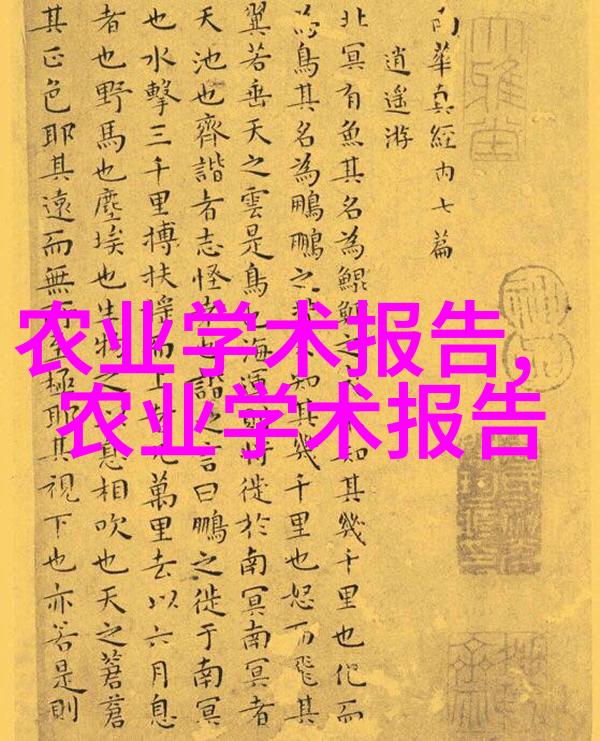 南華真經内七篇
逍遥游
北冥有魚其名為鯤鯤之知其幾千里也化而
為鳥其名為鵬鵬之背不知其幾千里也怒而飛其
翼若垂天之雲是鳥也海運則將徙於南冥南冥者
天池也齊諧者志怪者也諧之言曰鵬之徙于南冥
也水擊三千里摶扶摇而上者九萬里去以六月息
者也野馬也塵埃也生物之以息相吹也天之蒼蒼
其正色耶其遠而無所至極耶其視下也亦若是則
大雅堂
神品
农业学术报告,
农业学术报告